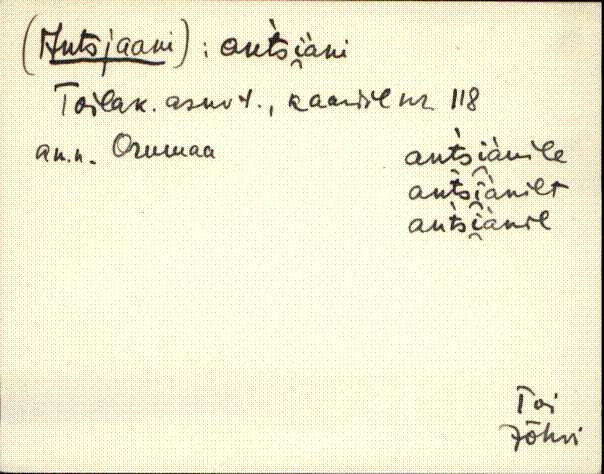 (Antsjaani) : ant̀si̯ȧni
Toila k. asund., kaardil nr 118
ak.n. Orumaa
ant̀si̯ànile
ant̀si̯ànilt
ant̀si̯ànil
Toi
Jõhvi